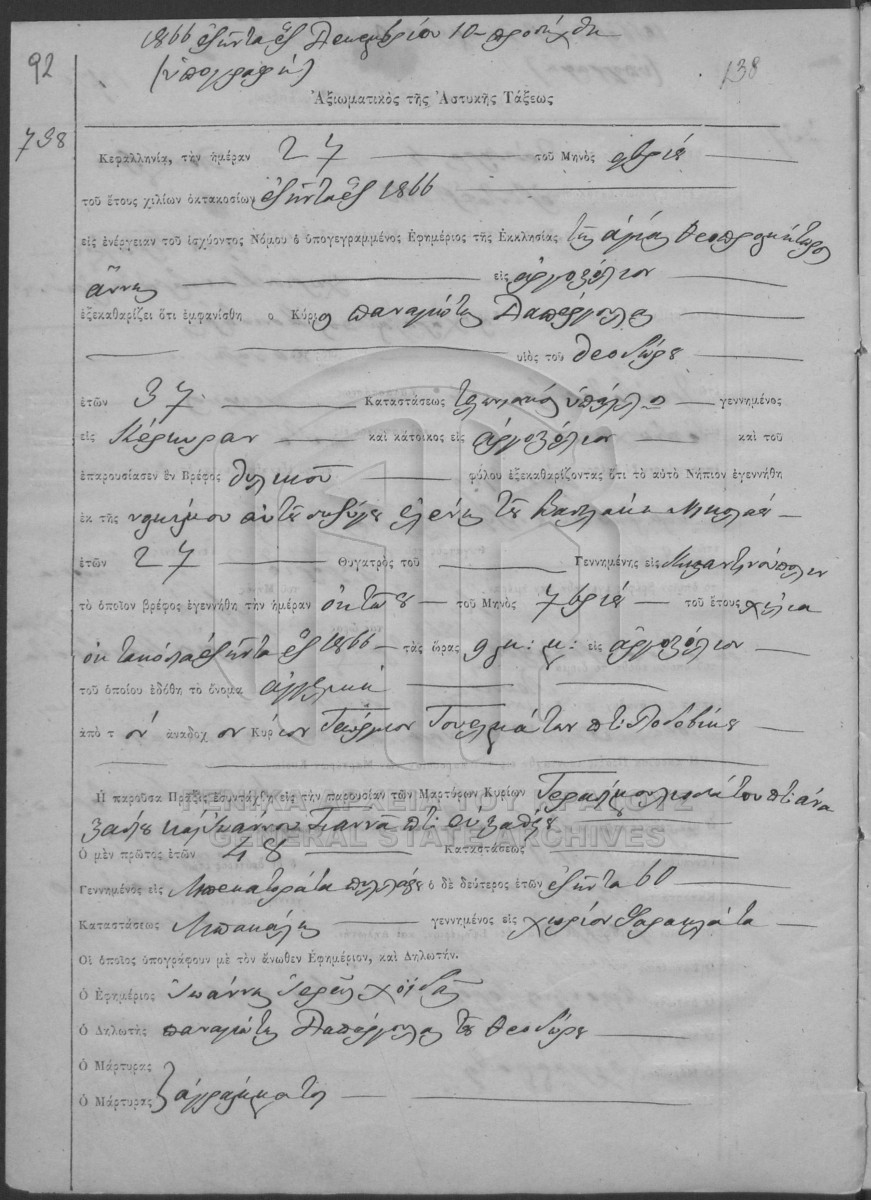 1866 ἑξῆντα ἕξ Δεκεμβρίου 10 προσήχθη
92
(ὑπογραφή)
138
Ἀξιωματικὸς τῆς Ἀστυκῆς Τάξεως
738
Κεφαλληνία, τὴν ἡμέραν 27 τοῦ Μηνὸς
τοῦ ἔτους χιλίων ὀκτακοσίων ἑξῆντα ἕξ 1866
εἰς ἐνέργειαν τοῦ ἰσχύοντος Νόμου ὁ ὑπογεγραμμένος Ἐφημέριος τῆς Ἐκκλησίας τῆς ἁγίας Θεοπρομήτορος
Ἄννης εἰς ἀργοστόλιον
ἐξεκαθαρίζει ὅτι ἐμφανίσθη ὁ Κύριος παναγιώτης
υἱὸς τοῦ θεοδώρου
ἐτῶν 37 Καταστάσεως τελωνιακός ὑπάλληλος γεννημένος
εἰς Κέρκυραν καὶ κάτοικος εἰς ἀργοστόλιον καὶ τοῦ
ἐπαρουσίασεν ἓν Βρέφος θηλικοῦ φύλου ἐξεκαθαρίζοντας ὅτι τὸ αὐτὸ Νήπιον ἐγεννήθη
ἐκ τῆς νομίμου αὐτοῦ συζύγου ἑλένης τοῦ
ἐτῶν 27 Θυγατρὸς τοῦ Γεννημένης εἰς Κωνσταντινούπολιν
τὸ ὁποῖον βρέφος ἐγεννήθη τὴν ἡμέραν ὀκτὼ 8 τοῦ Μηνὸς 7βρίου τοῦ ἔτους χίλια
ὀκτακόσια ἑξῆντα ἕξ 1866 τὰς ὥρας 9 μ: μ: εἰς ἀργοστόλιον
τοῦ ὁποίου ἐδόθη τὸ ὄνομα ἀγγελική
ἀπὸ τ όν ἀναδοχ ον Κύριον Γεώργιον
Ἡ παροῦσα Πρᾶξις ἐσυντάχθη εἰς τὴν παρουσίαν τῶν Μαρτύρων Κυρίων
ΓΕΝΙΚΑ ΑΡΧΕΙΑ ΤΟΥ ΚΡΑΤΟΥΣ
καὶ Ἰωάννου
GENERAL STATE ARCHIVES
Ὁ μὲν πρῶτος ἐτῶν 48 Καταστάσεως
Γεννημένος εἰς Μπεκατοράτα ὁ δὲ δεύτερος ἐτῶν ἑξῆντα 60
Καταστάσεως Μπακάλης γεννημένος εἰς χωρίον Φαρακλάτα
Οἱ ὁποῖος ὑπογράφουν μὲ τὸν ἄνωθεν Ἐφημέριον, καὶ Δηλωτήν.
Ὁ Ἐφημέριος Ἰωάννης Ἱερεύς
Ὁ Δηλωτὴς παναγιώτης τοῦ θεοδώρου
Ὁ Μάρτυρας
Ὁ Μάρτυρας ἀγράμματοι